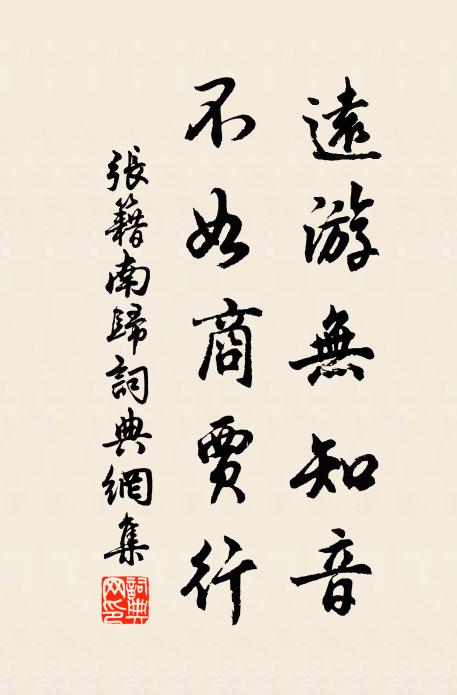 遠游無知音
不如商賈行
張籍南歸詞典網集
詞典網印